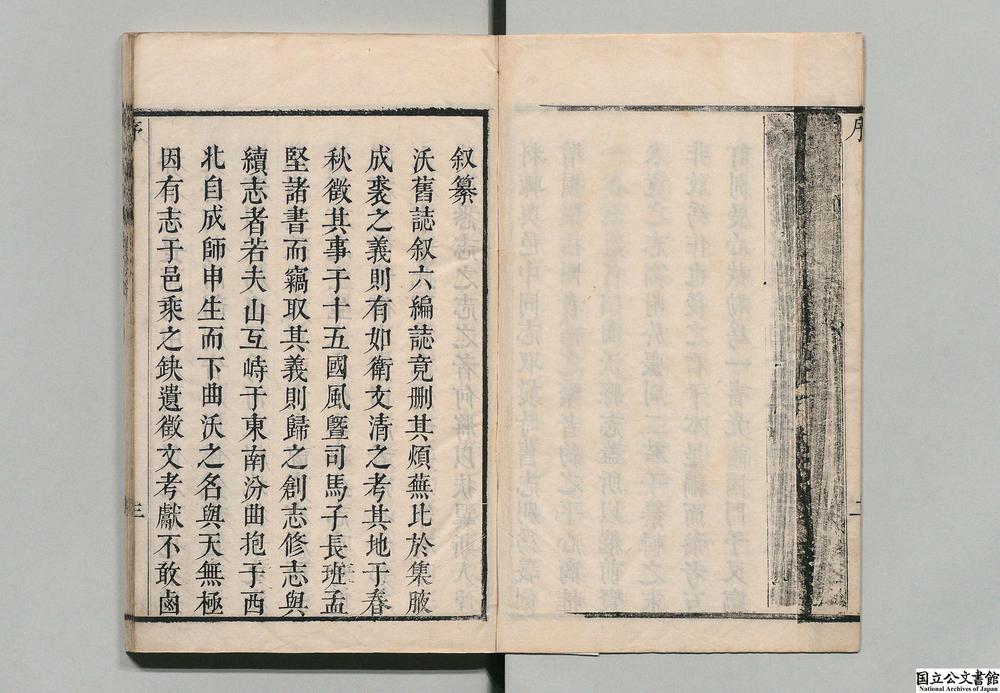 序
二
叙纂
沃舊誌叙六編誌竟删其煩蕪比於集腋
成裘之義則有如衛文清之考其地于春
秋徵其事于十五國風曁司馬子長班孟
堅諸書而竊取其義則歸之創志修志與
續志者若夫山互峙于東南汾曲抱于西
北自成師申生而下曲沃之名與天無極
因有志于邑乘之缺遺徵文考獻不敢鹵
序
三
国立公文書館
National Archives of Japan